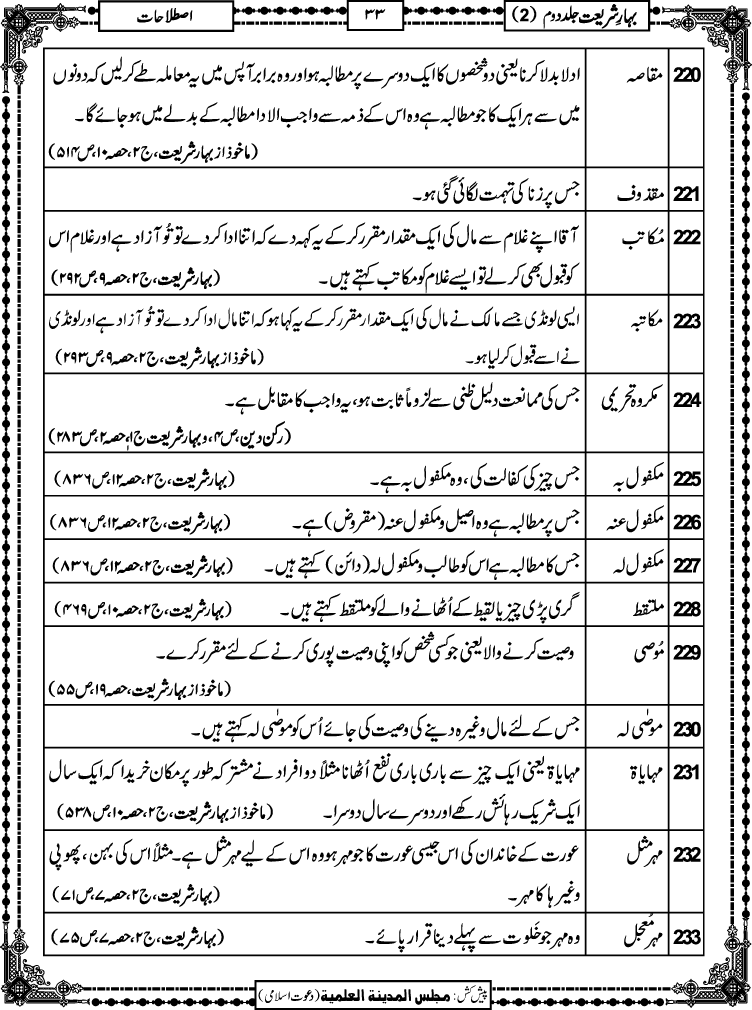 بہارِشریعت جلددوم (2)
۳۳
اصطلاحات
220 مقاصہ ادلا بدلا کرنا یعنی دوشخصوں کا ایک دوسرے پر مطالبہ ہو اور وہ برابر آپس میں یہ معاملہ طے کرلیں کہ دونوں
میں سے ہر ایک کا جو مطالبہ ہے وہ اس کے ذمہ سے واجب الادا مطالبہ کے بدلے میں ہوجائے گا۔
(ماخوذ از بہارشریعت،ج۲،حصہ۱۰،ص۵۱۴)
221 مقذوف جس پر زنا کی تہمت لگائی گئی ہو۔
222 مُکاتب آقا اپنے غلام سے مال کی ایک مقدار مقرر کرکے یہ کہہ دے کہ اتنا ادا کردے تو تُو آزاد ہے اور غلام اس
کو قبول بھی کرلے تو ایسے غلام کو مکاتب کہتے ہیں۔ (بہارشریعت،ج۲،حصہ۹،ص۲۹۲)
223 مکاتبہ ایسی لونڈی جسے مالک نے مال کی ایک مقدار مقرر کرکے یہ کہا ہو کہ اتنا مال ادا کردے تو تُو آزاد ہے اور لونڈی
نے اسے قبول کرلیا ہو۔ (ماخوذ از بہارشریعت،ج۲،حصہ۹،ص۲۹۳)
224 مکروہ تحریمی جس کی ممانعت دلیل ظنی سے لزوماً ثابت ہو، یہ واجب کا مقابل ہے۔
(رکن دین،ص۴،و بہارشریعت ج۱،حصہ۲،ص۲۸۳)
225 مکفول بہ جس چیز کی کفالت کی، وہ مکفول بہ ہے۔ (بہارشریعت،ج۲،حصہ۱۲،ص۸۳۶)
226 مکفول عنہ جس پر مطالبہ ہے وہ اصیل و مکفول عنہ (مقروض) ہے۔ (بہارشریعت،ج۲،حصہ۱۲،ص۸۳۶)
227 مکفول لہ جس کا مطالبہ ہے اس کو طالب و مکفول لہ (دائن) کہتے ہیں۔ (بہارشریعت،ج۲،حصہ۱۲،ص۸۳۶)
228 ملتقط گری پڑی چیز یا لقیط کے اُٹھانے والے کو ملتقط کہتے ہیں۔ (بہارشریعت،ج۲،حصہ۱۰،ص۴۶۹)
229 مُوصی وصیت کرنے والا یعنی جو کسی شخص کو اپنی وصیت پوری کرنے کے لئے مقرر کرے۔
(ماخوذ از بہارشریعت،حصہ۱۹،ص۵۵)
230 موصٰی لہ جس کے لئے مال وغیرہ دینے کی وصیت کی جائے اُس کو موصٰی لہ کہتے ہیں۔
231 مہایاۃ مہایاۃ یعنی ایک چیز سے باری باری نفع اُٹھانا مثلاً دو افراد نے مشترکہ طور پر مکان خریدا کہ ایک سال
ایک شریک رہائش رکھے اور دوسرے سال دوسرا۔ (ماخوذ از بہارشریعت،ج۲،حصہ۱۰،ص۵۳۸)
232 مہر مثل عورت کے خاندان کی اس جیسی عورت کا جو مہر ہو وہ اس کے لیے مہر مثل ہے۔مثلاً اس کی بہن، پھوپی
وغیرہا کا مہر۔ (بہارشریعت،ج۲،حصہ۷،ص۷۱)
233 مہر مُعجل وہ مہر جو خَلوت سے پہلے دینا قرار پائے۔ (بہارشریعت،ج۲،حصہ۷،ص۷۵)
پیش کش: مجلس المدینة العلمیة (دعوت اسلامی)